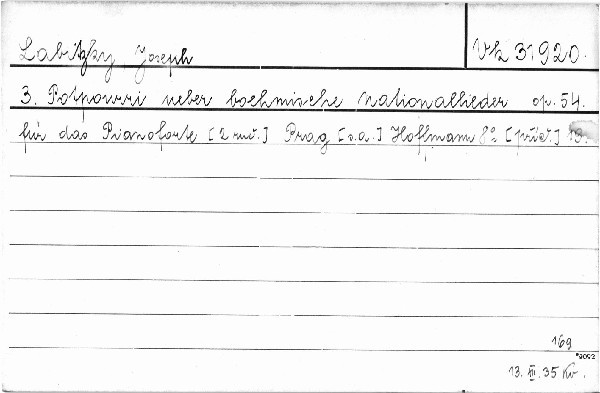 Labitzky, Joseph
Vk 31920.
3. Potpourri ueber boehmische Nationallieder op. 54.
für das Pianoforte [2 ruč.] Prag [s.a.] Hoffmann 8° [příč.] 19.
169
*3092
13. III. 35 Kv.